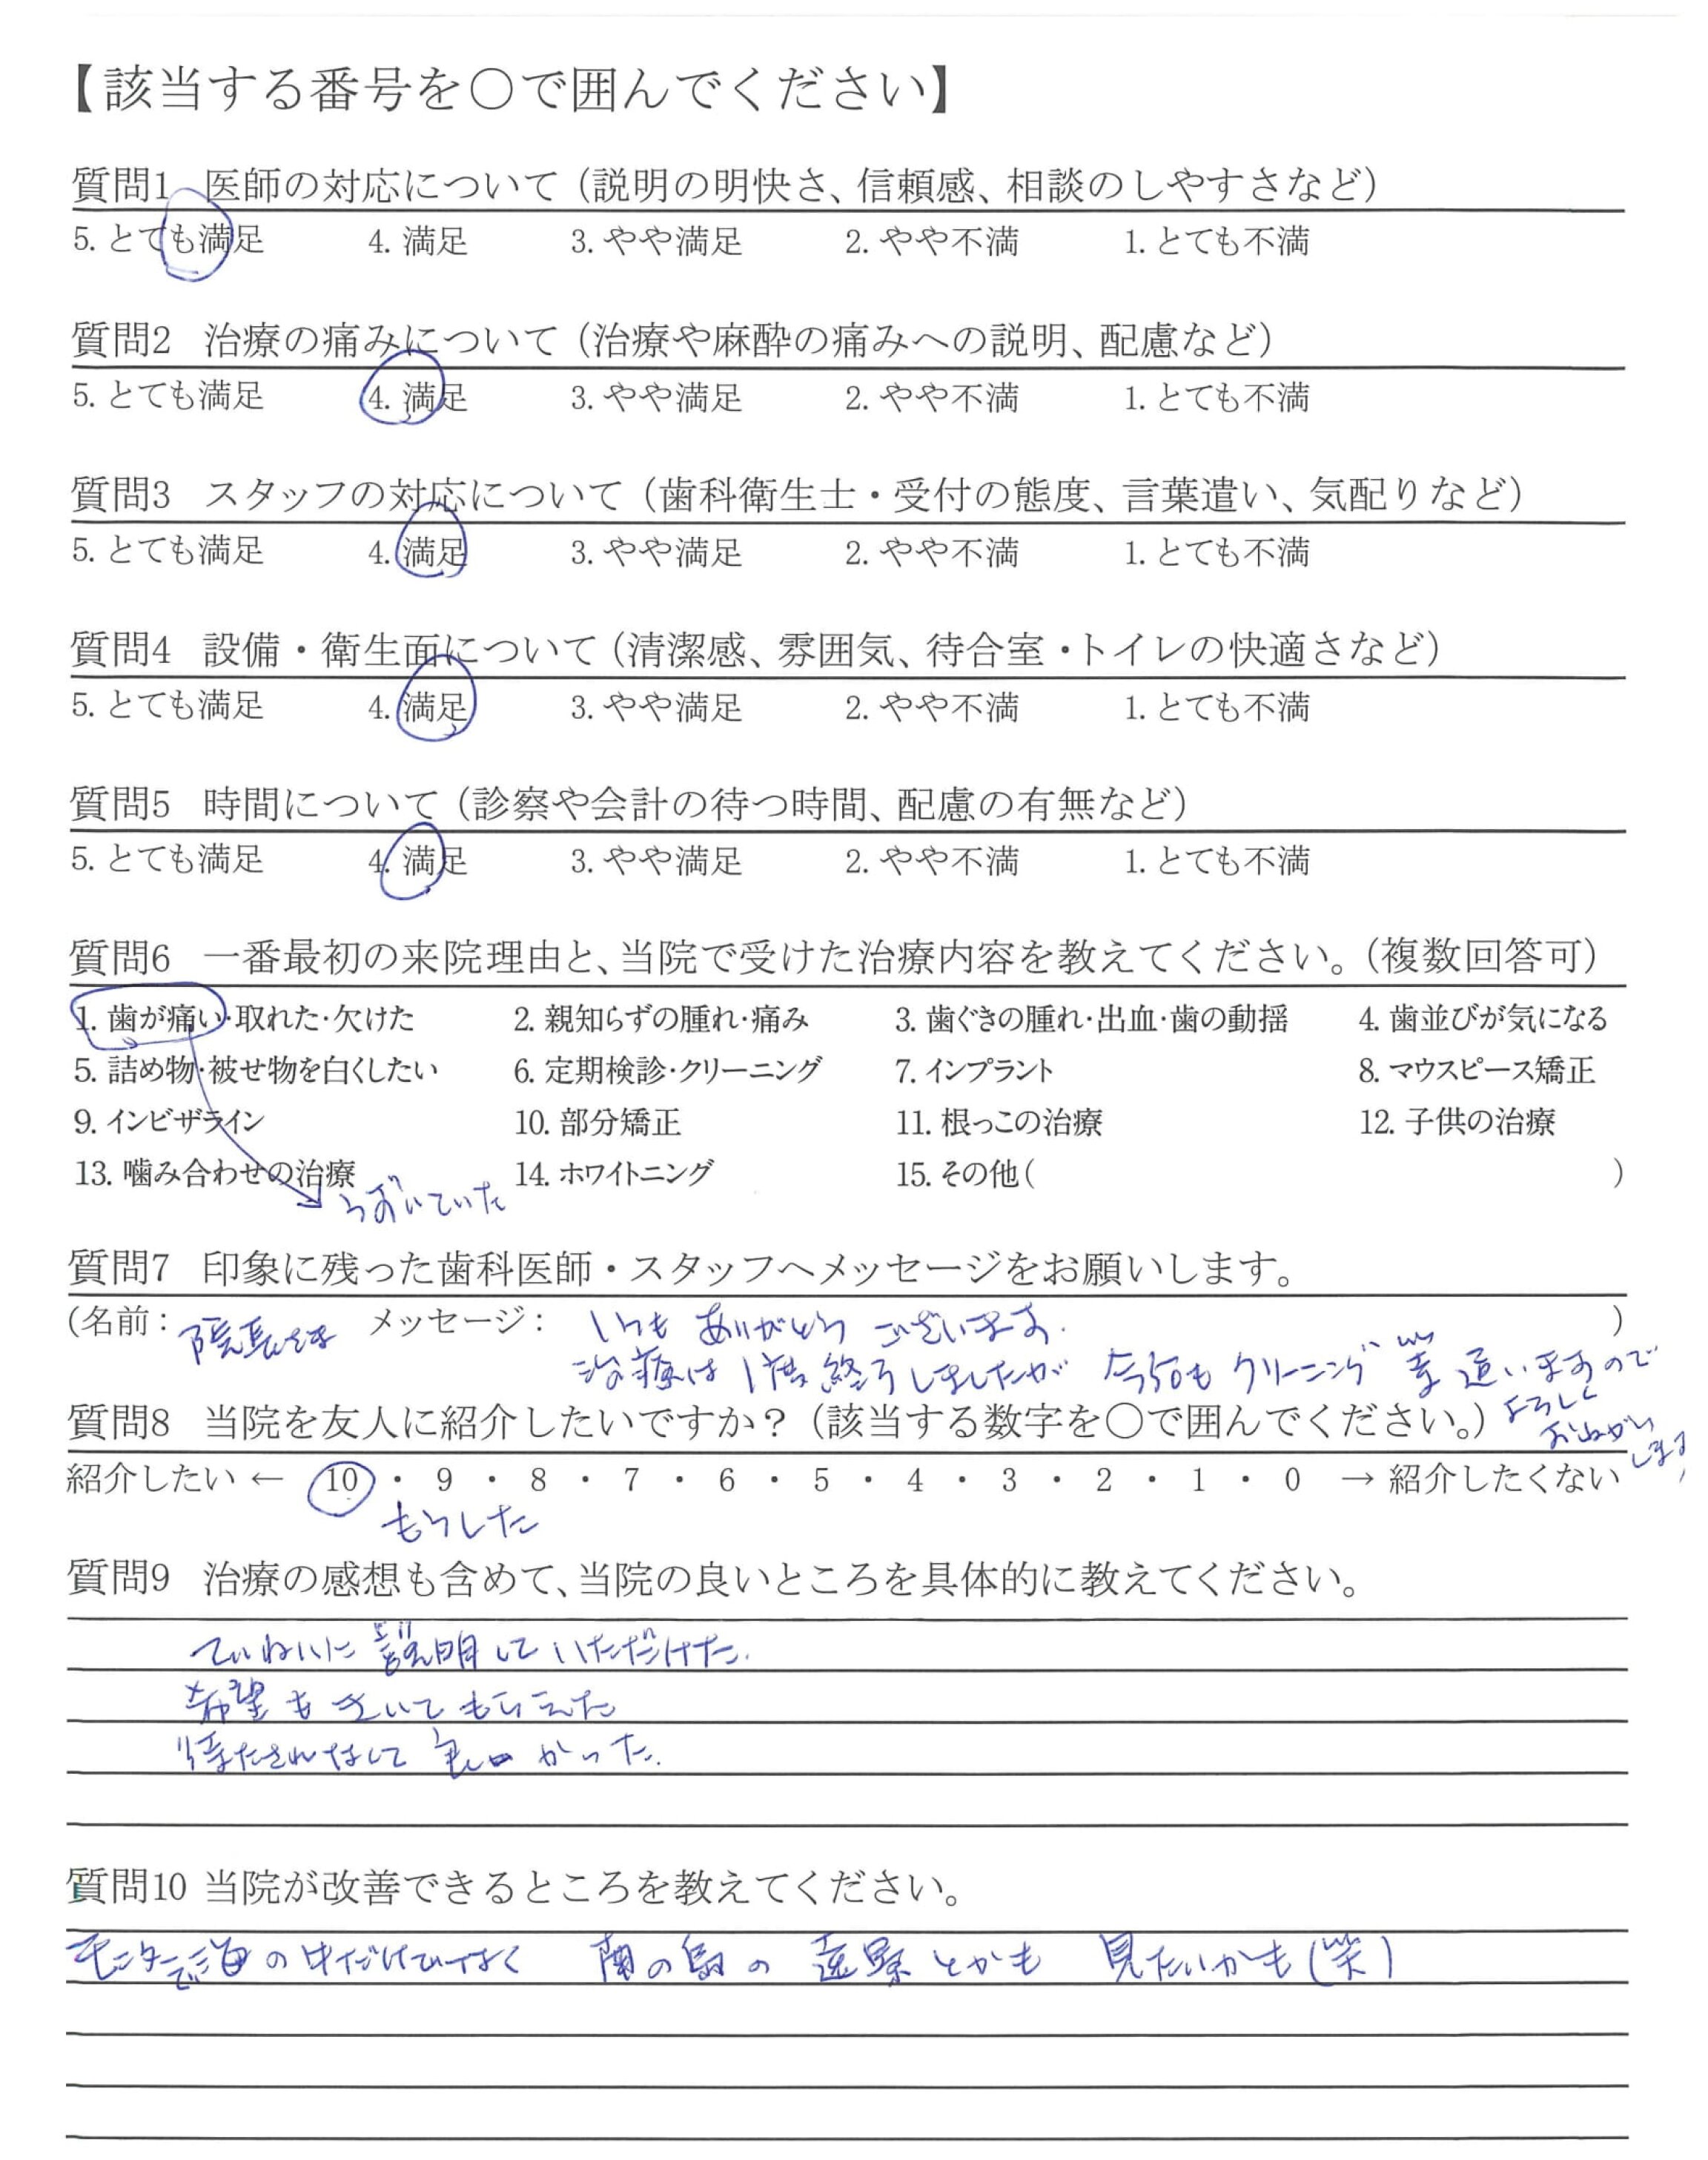 【該当する番号を○で囲んでください】
質問1 医師の対応について（説明の明快さ、信頼感、相談のしやすさなど）
5. とても満足 4. 満足 3. やや満足 2. やや不満 1. とても不満
質問2 治療の痛みについて（治療や麻酔の痛みへの説明、配慮など）
5. とても満足 4. 満足 3. やや満足 2. やや不満 1. とても不満
質問3 スタッフの対応について（歯科衛生士・受付の態度、言葉遣い、気配りなど）
5. とても満足 4. 満足 3. やや満足 2. やや不満 1. とても不満
質問4 設備・衛生面について（清潔感、雰囲気、待合室・トイレの快適さなど）
5. とても満足 4. 満足 3. やや満足 2. やや不満 1. とても不満
質問5 時間について（診察や会計の待つ時間、配慮の有無など）
5. とても満足 4. 満足 3. やや満足 2. やや不満 1. とても不満
質問6 一番最初の来院理由と、当院で受けた治療内容を教えてください。（複数回答可）
1. 歯が痛い・取れた・欠けた 2. 親知らずの腫れ・痛み 3. 歯ぐきの腫れ・出血・歯の動揺 4. 歯並びが気になる
5. 詰め物・被せ物を白くしたい 6. 定期検診・クリーニング 7. インプラント 8. マウスピース矯正
9. インビザライン 10. 部分矯正 11. 根っこの治療 12. 子供の治療
13. 噛み合わせの治療 14. ホワイトニング 15. その他( )
うずいていた
質問7 印象に残った歯科医師・スタッフへメッセージをお願いします。
(名前： 院長さま メッセージ： いつも ありがとう ございます. )
治療は 1度 終了しましたが 今後も クリーニング 等 通いますので
よろしく
おねがい
します
質問8 当院を友人に紹介したいですか？（該当する数字を○で囲んでください。）
紹介したい ← 10 ・ 9 ・ 8 ・ 7 ・ 6 ・ 5 ・ 4 ・ 3 ・ 2 ・ 1 ・ 0 → 紹介したくない
もうした
質問9 治療の感想も含めて、当院の良いところを具体的に教えてください。
ていねいに 説明して いただけた.
希望も きいて もらえた
待たされなくて 良かった.
質問10 当院が改善できるところを教えてください。
モニターで海の中だけでなく 南の島の 遠景とかも 見たいかも(笑)